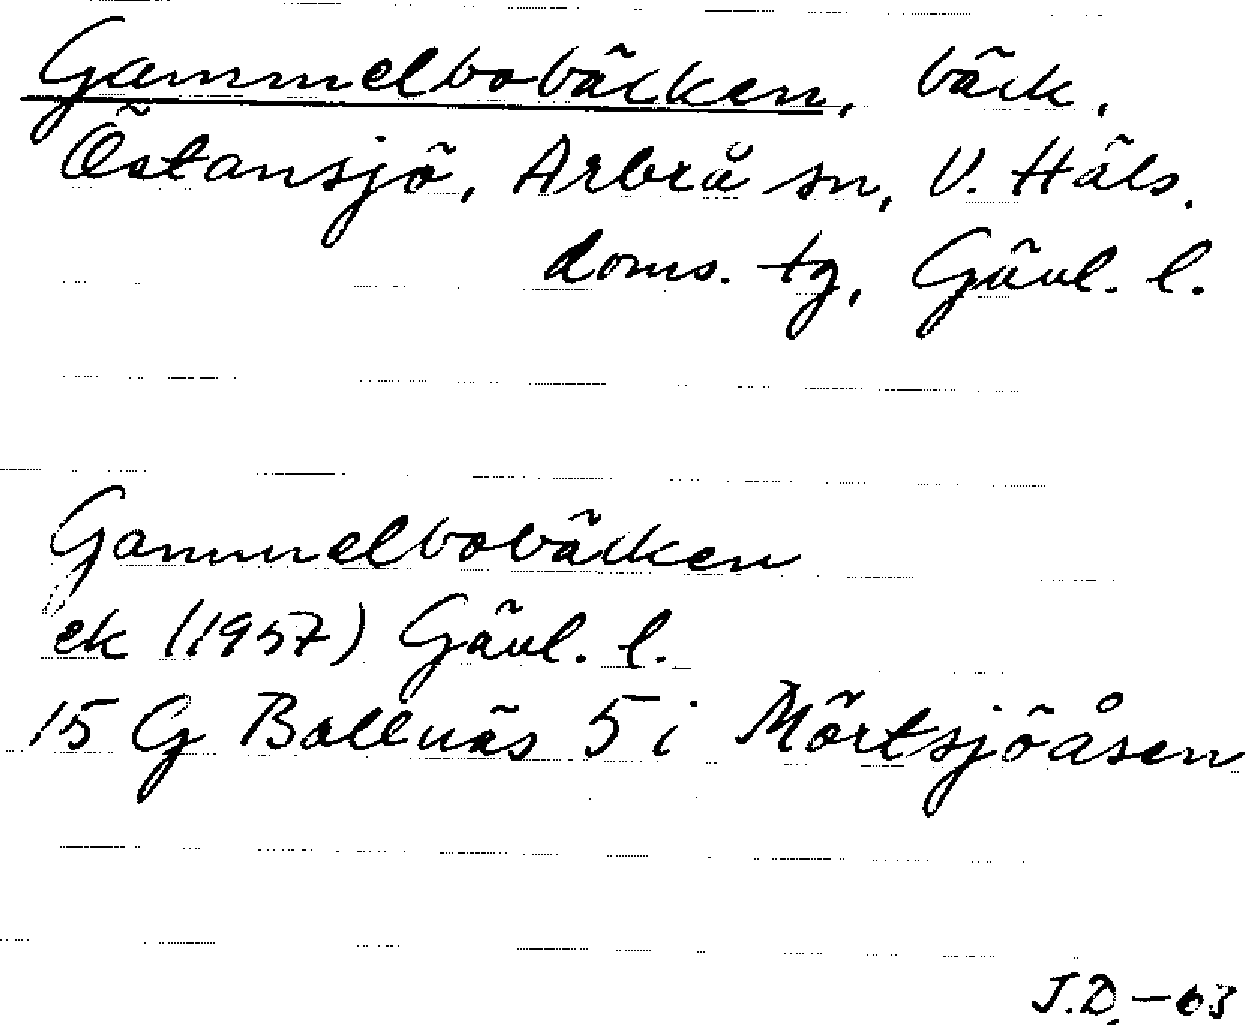 Gammelbobäcken, bäck,
Östansjö, Arbrå sn, V. Häls.
doms. tg, Gävl. l.
Gammelbobäcken
ek (1957) Gävl. l.
15 G Bollnäs 5 i Mörtsjöåsen
J.D. -63